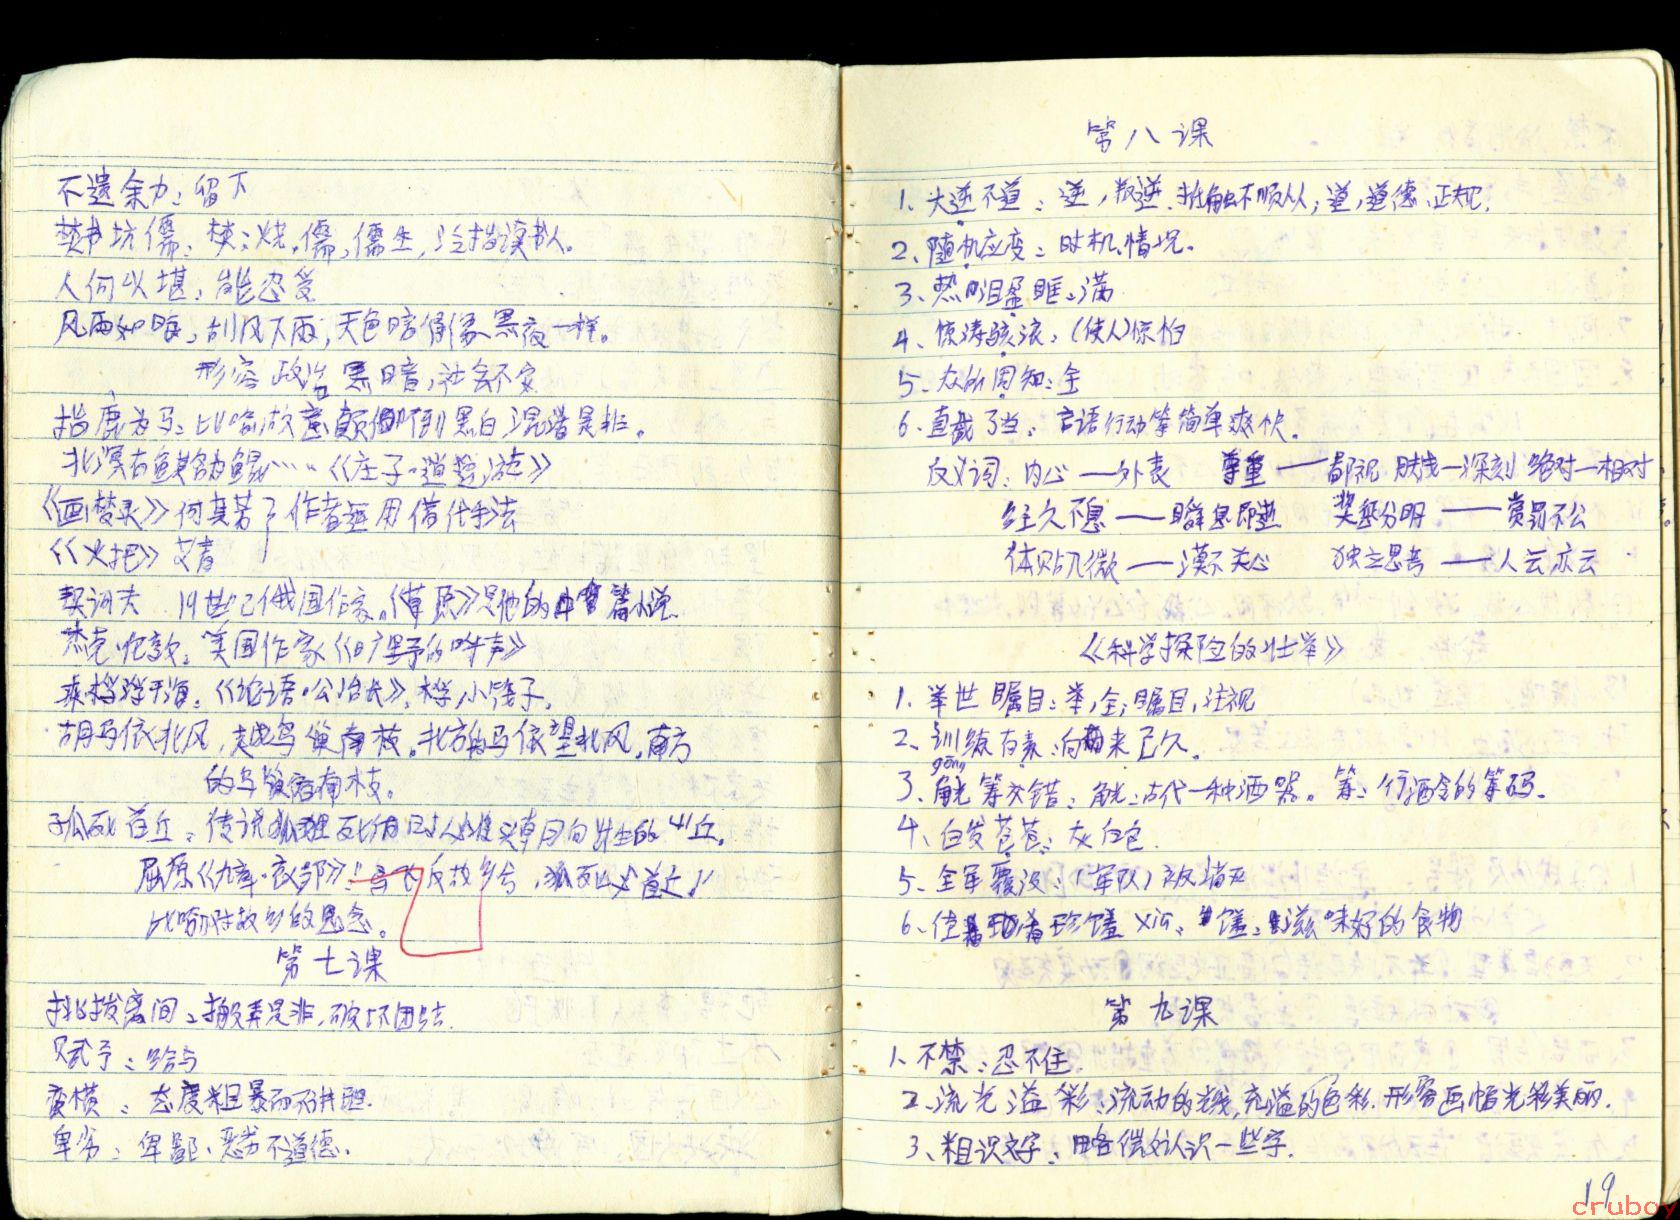 不遗余力：留下
焚书坑儒：焚：烧。儒，儒生，泛指读书人。
人何以堪：能忍受
风雨如晦：刮风下雨，天色暗得像黑夜一样。
形容政治黑暗，社会不安
指鹿为马：比喻故意颠倒黑白，混淆是非。
北溟有鱼其名为鲲……《庄子·逍遥游》
《画梦录》何其芳 作者运用借代手法
《火把》艾青
契诃夫 19世纪俄国作家。《草原》是他的中篇小说.
杰克·伦敦：美国作家《旷野的呼声》
乘桴浮于海：《论语·公冶长》，桴，小筏子.
胡马依北风，越鸟巢南枝。北方的马依望北风，南方
的鸟筑窝南枝。
狐死首丘：传说狐狸死的时候头朝向出生的山丘。
屈原《九章·哀郢》：反故乡兮，狐死必首丘！
比喻对故乡的思念。
第七课
挑拨离间：搬弄是非，破坏团结.
赋予：给与
蛮横：态度粗暴而不讲理.
卑劣：卑鄙、恶劣不道德.
第八课
1、大逆不道：逆，叛逆、抵触不顺从；道，道德、正规.
2、随机应变：时机、情况。
3、热泪盈眶：满
4、惊涛骇浪：（使人）惊怕
5、众所周知：全
6、直截了当：言语行动等简单爽快。
反义词：内心——外表 尊重——鄙视 肤浅—深刻 绝对—相对
经久不息——瞬息即逝 奖惩分明——赏罚不公
体贴入微——漠不关心 独立思考——人云亦云
《科学探险的壮举》
1、举世瞩目：举，全；瞩目，注视
2、训练有素：向来已久、
gōng
3、觥筹交错：觥：古代一种酒器。筹：行酒令的筹码.
4、白发苍苍：灰白色.
5、全军覆没：（军队）被消灭
6、佳 珍馐 xiū：馐：滋味好的食物
第九课
1、不禁：忍不住.
2、流光溢彩：流动的光线，充溢的色彩.形容画幅光彩美丽.
3、粗识文字：略微认识一些字.
19
cruboy